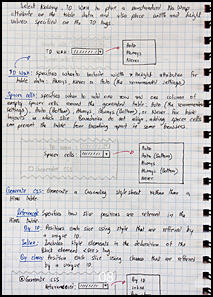 Select Existing TD W&H to plot a
attribute on the table data and also place width and height
values specified on the TD tags.
TD W&H:
Auto
Always
Never
TD W&H: Specifies when to include width & height attributes for
table data. Always, Never or Auto (the recommended setting)
Spacer cells: Specifies when to add one row and one column of
empty spacer cells around the generated table: Auto (the recommended
settings), Auto (Bottom), Always, Always (Bottom), or Never. For table
layouts in which slice boundaries do not align adding spacer cells
can prevent the table from breaking apart in some browsers.
Spacer cells
Auto
Auto (Bottom)
Always
Always (Bottom)
Never
Generate CSS: Generate a Cascading Style Sheet rather than a
HTML table.
Referenced: Specifies how slice positions are referenced in the
HTML table.
By ID: Positions each slice using style that are referenced by
a unique ID.
Inline: Includes style elements in the declaration of the
block element <DIV> tag.
By class: Positions each slice using classes that are referenced
by a unique ID.
Generate CSS
Referenced:
By ID
Inline